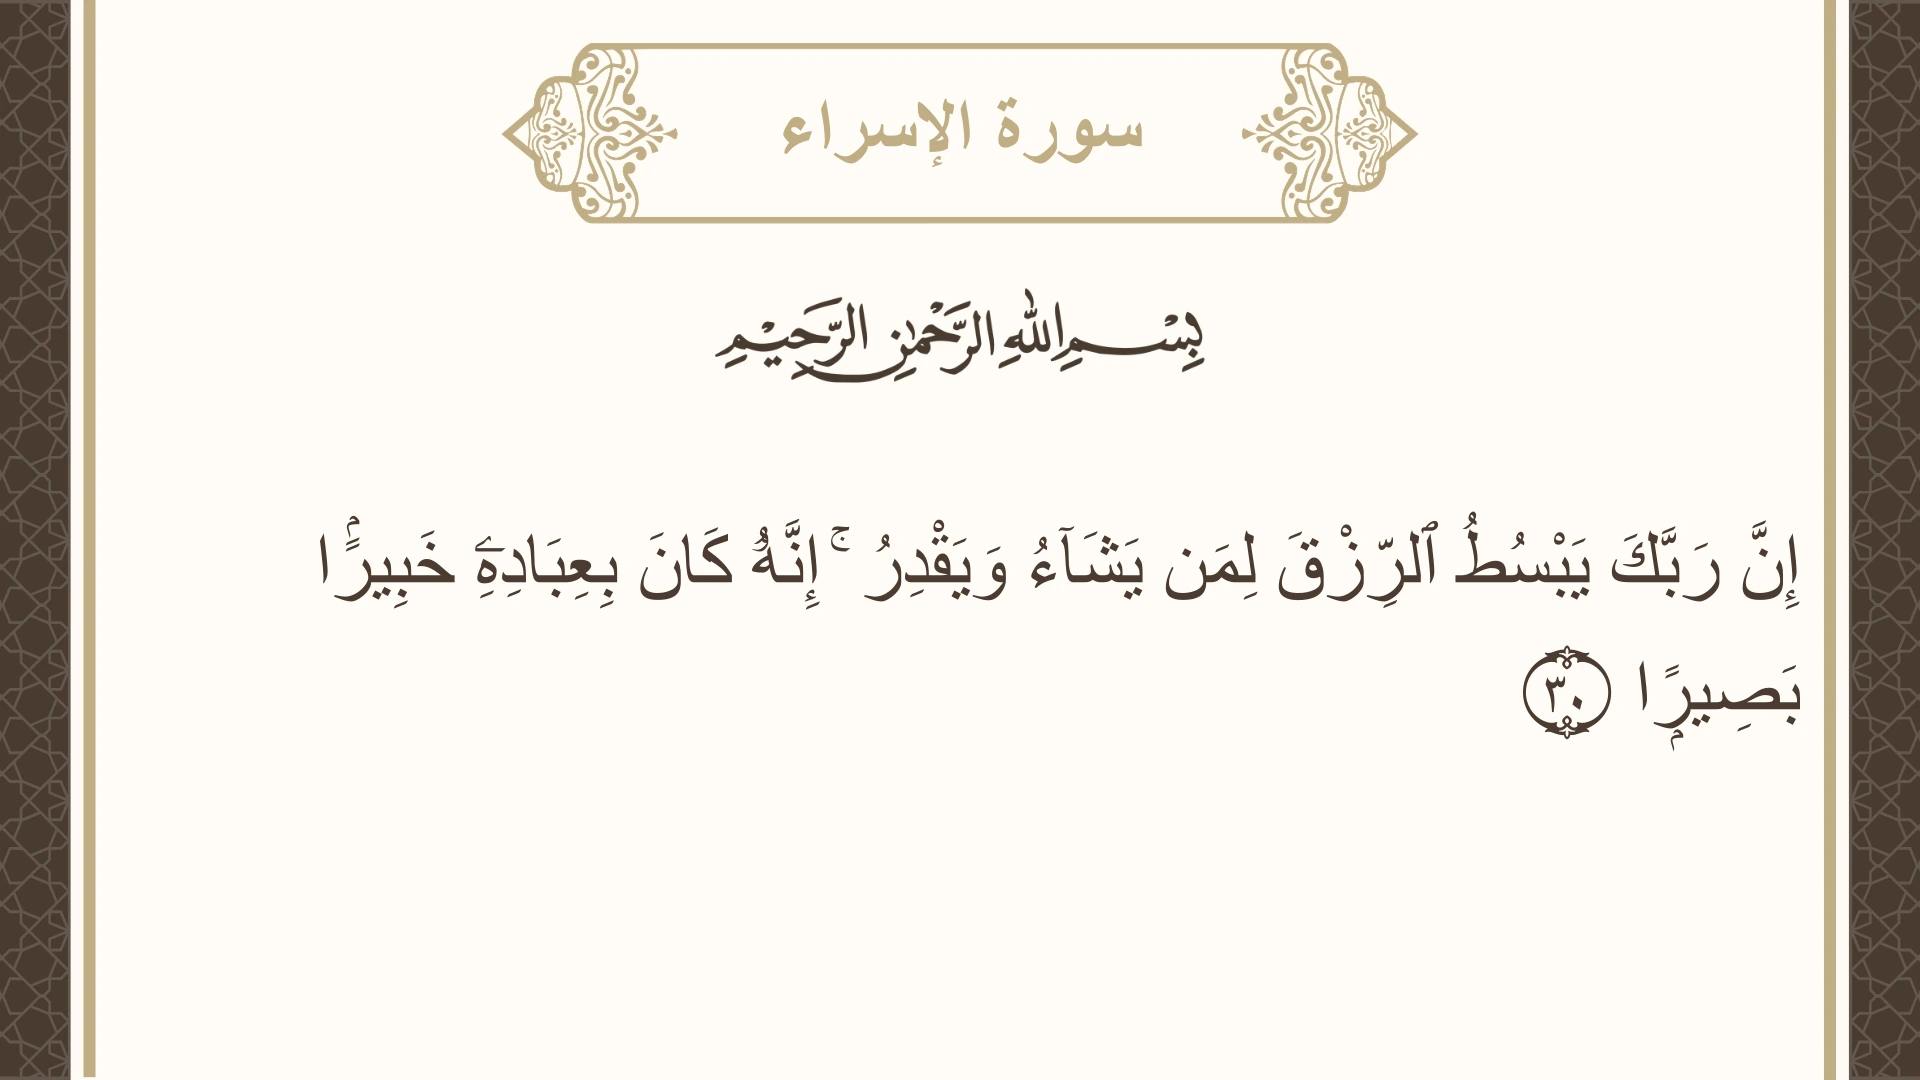 سورة الإسراء
بِسْمِ اللهِ الرَّحْمٰنِ الرَّحِيْمِ
إِنَّ رَبَّكَ يَبْسُطُ ٱلرِّزْقَ لِمَن يَشَآءُ وَيَقْدِرُ ۚ إِنَّهُۥ كَانَ بِعِبَادِهِۦ خَبِيرًۢا
بَصِيرًۭا ٣٠